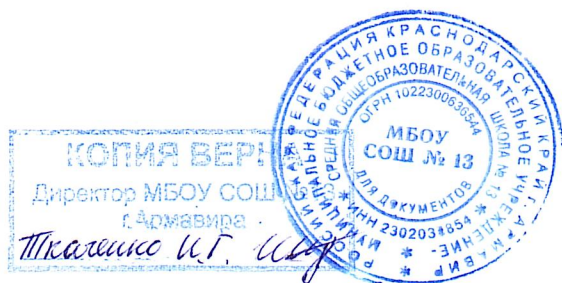 КОПИЯ ВЕРНА
Директор МБОУ СОШ № 13
г.Армавира
Ткаченко И.Г.
РОССИЙСКАЯ ФЕДЕРАЦИЯ КРАСНОДАРСКИЙ КРАЙ Г. АРМАВИР
МУНИЦИПАЛЬНОЕ БЮДЖЕТНОЕ ОБРАЗОВАТЕЛЬНОЕ УЧРЕЖДЕНИЕ-
СРЕДНЯЯ ОБЩЕОБРАЗОВАТЕЛЬНАЯ ШКОЛА № 13
ИНН
ОГРН
МБОУ
СОШ № 13
ДЛЯ ДОКУМЕНТОВ